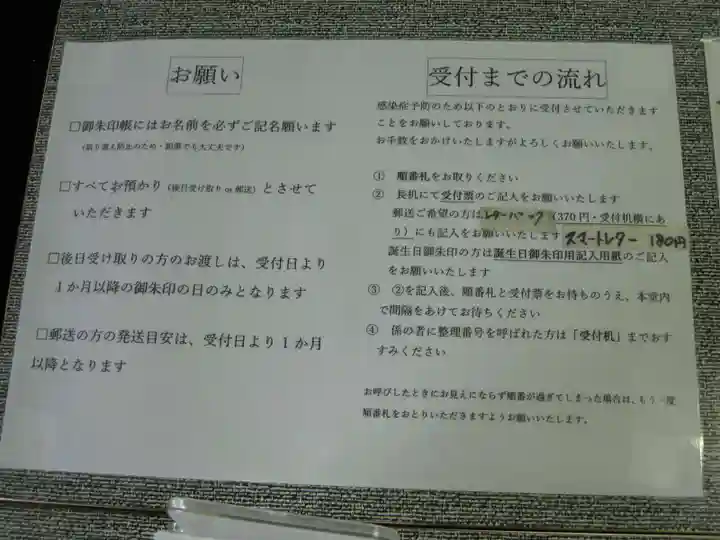 お願い
□御朱印帳にはお名前を必ずご記名願います
（取り違え防止のため・鉛筆でも大丈夫です）
□すべてお預かり（後日受け取り or 郵送）とさせて
いただきます
□後日受け取りの方のお渡しは、受付日より
１か月以降の御朱印の日のみとなります
□郵送の方の発送目安は、受付日より１か月
以降となります
受付までの流れ
感染症予防のため以下のとおりに受付させていただきます
ことをお願いしております。
お手数をおかけいたしますがよろしくお願いいたします。
① 順番札をお取りください
② 長机にて受付票のご記入をお願いいたします
郵送ご希望の方はレターパック（370円・受付机横にあ
り）にも記入をお願いいたします スマートレター 180円
誕生日御朱印の方は誕生日御朱印用記入用紙のご記入
をお願いいたします
③ ②を記入後、順番札と受付票をお持ちのうえ、本堂内
で間隔をあけてお待ちください
④ 係の者に整理番号を呼ばれた方は「受付机」までおす
すみください
お呼びしたときにお見えにならず順番が過ぎてしまった場合は、もう一度
順番札をおとりいただきますようお願いいたします。